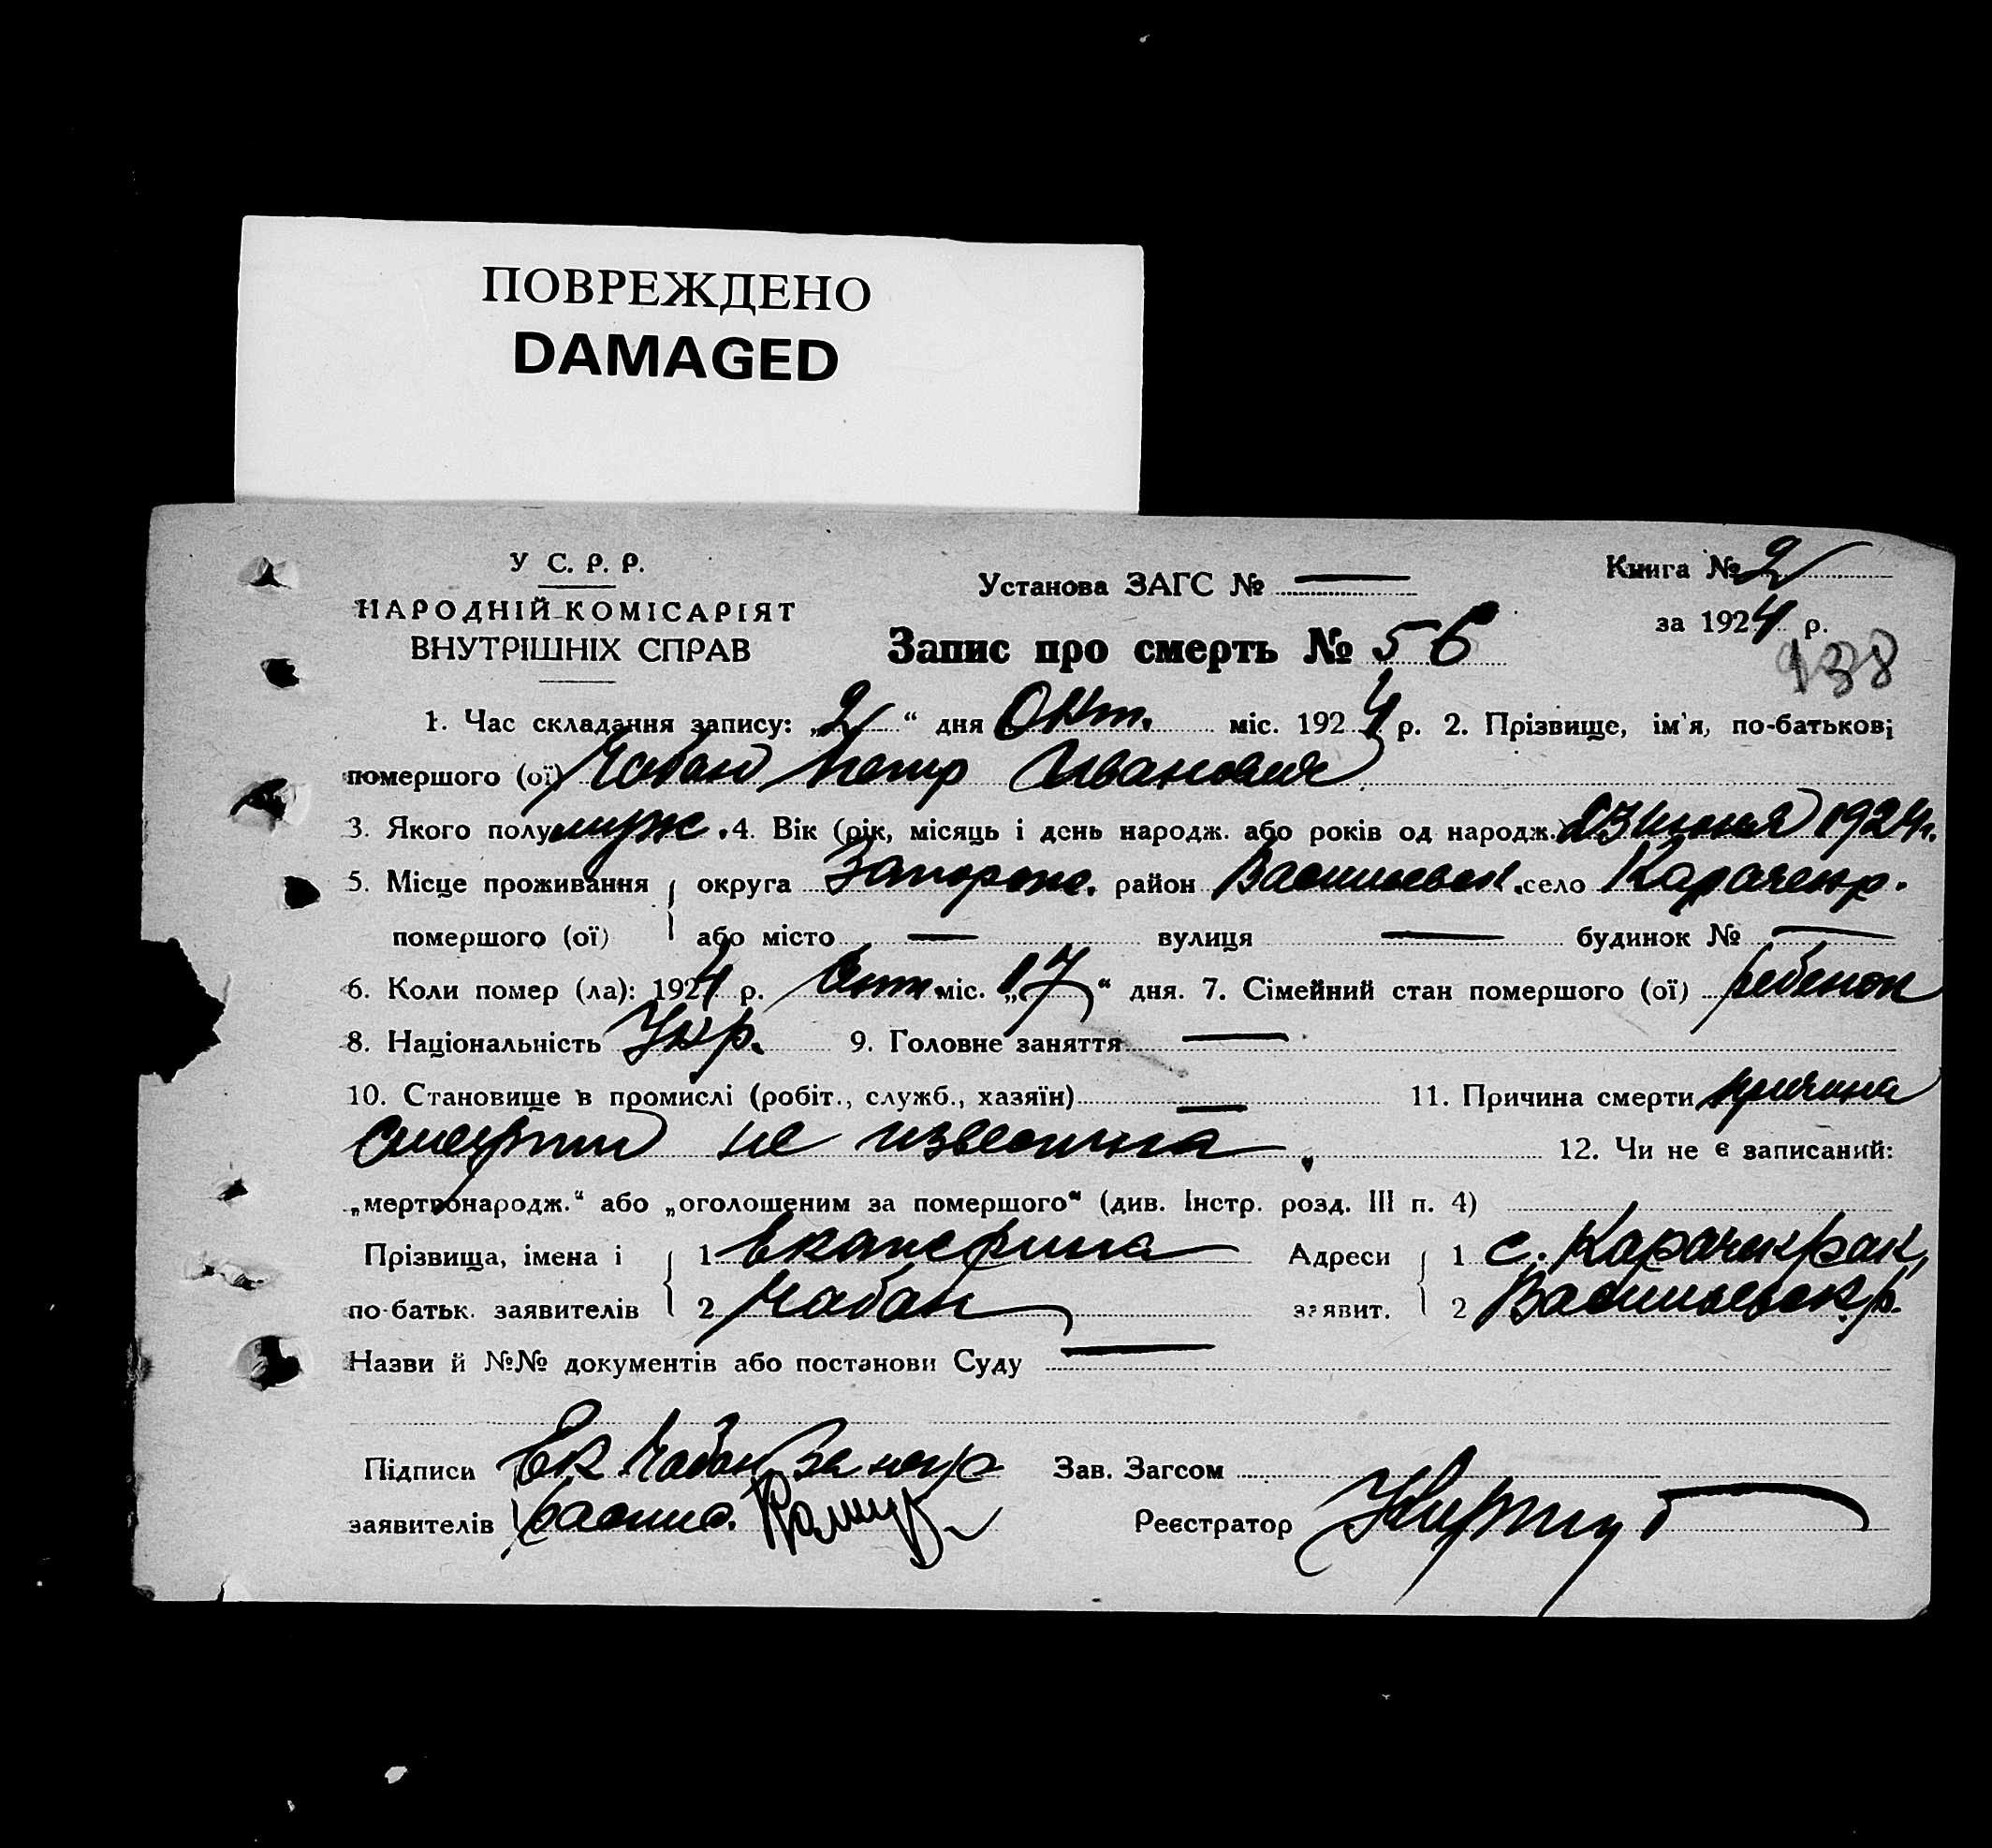 ПОВРЕЖДЕНО
DAMAGED
У С. Р. Р.
НАРОДНІЙ КОМІСАРІЯТ
ВНУТРІШНІХ СПРАВ
Установа ЗАГС № —
Книга № 2
за 1924 р.
Запис про смерть № 56
138
1. Час складання запису: „2“ дня Окт. міс. 1924 р. 2. Прізвище, ім'я, по-батькові
помершого (ої) Чабан Петр Иванович
3. Якого полу муж. 4. Вік (рік, місяць і день народж. або років од народж.) 23 июня 1924 г.
5. Місце проживання округа Запорож. район Васильевск. село Карачекр.
помершого (ої) або місто — вулиця — будинок № —
6. Коли помер (ла): 1924 р. міс. „17“ дня. 7. Сімейний стан помершого (ої) ребенок
8. Національність Укр. 9. Головне заняття —
10. Становище в промислі (робіт., служб., хазяїн) — 11. Причина смерти причина
смерти не известна. 12. Чи не є записаний:
„мертвонародж.“ або „оголошеним за помершого“ (див. Інстр. розд. III п. 4)
Прізвища, імена і 1 Екатерина Адреси 1 с. Карачекрак,
по-батьк. заявителів 2 Чабан заявит. 2 Васильевск. р.
Назви й №№ документів або постанови Суду —
Підписи Ек Чабан за негр Зав. Загсом
заявителів распис. Реєстратор